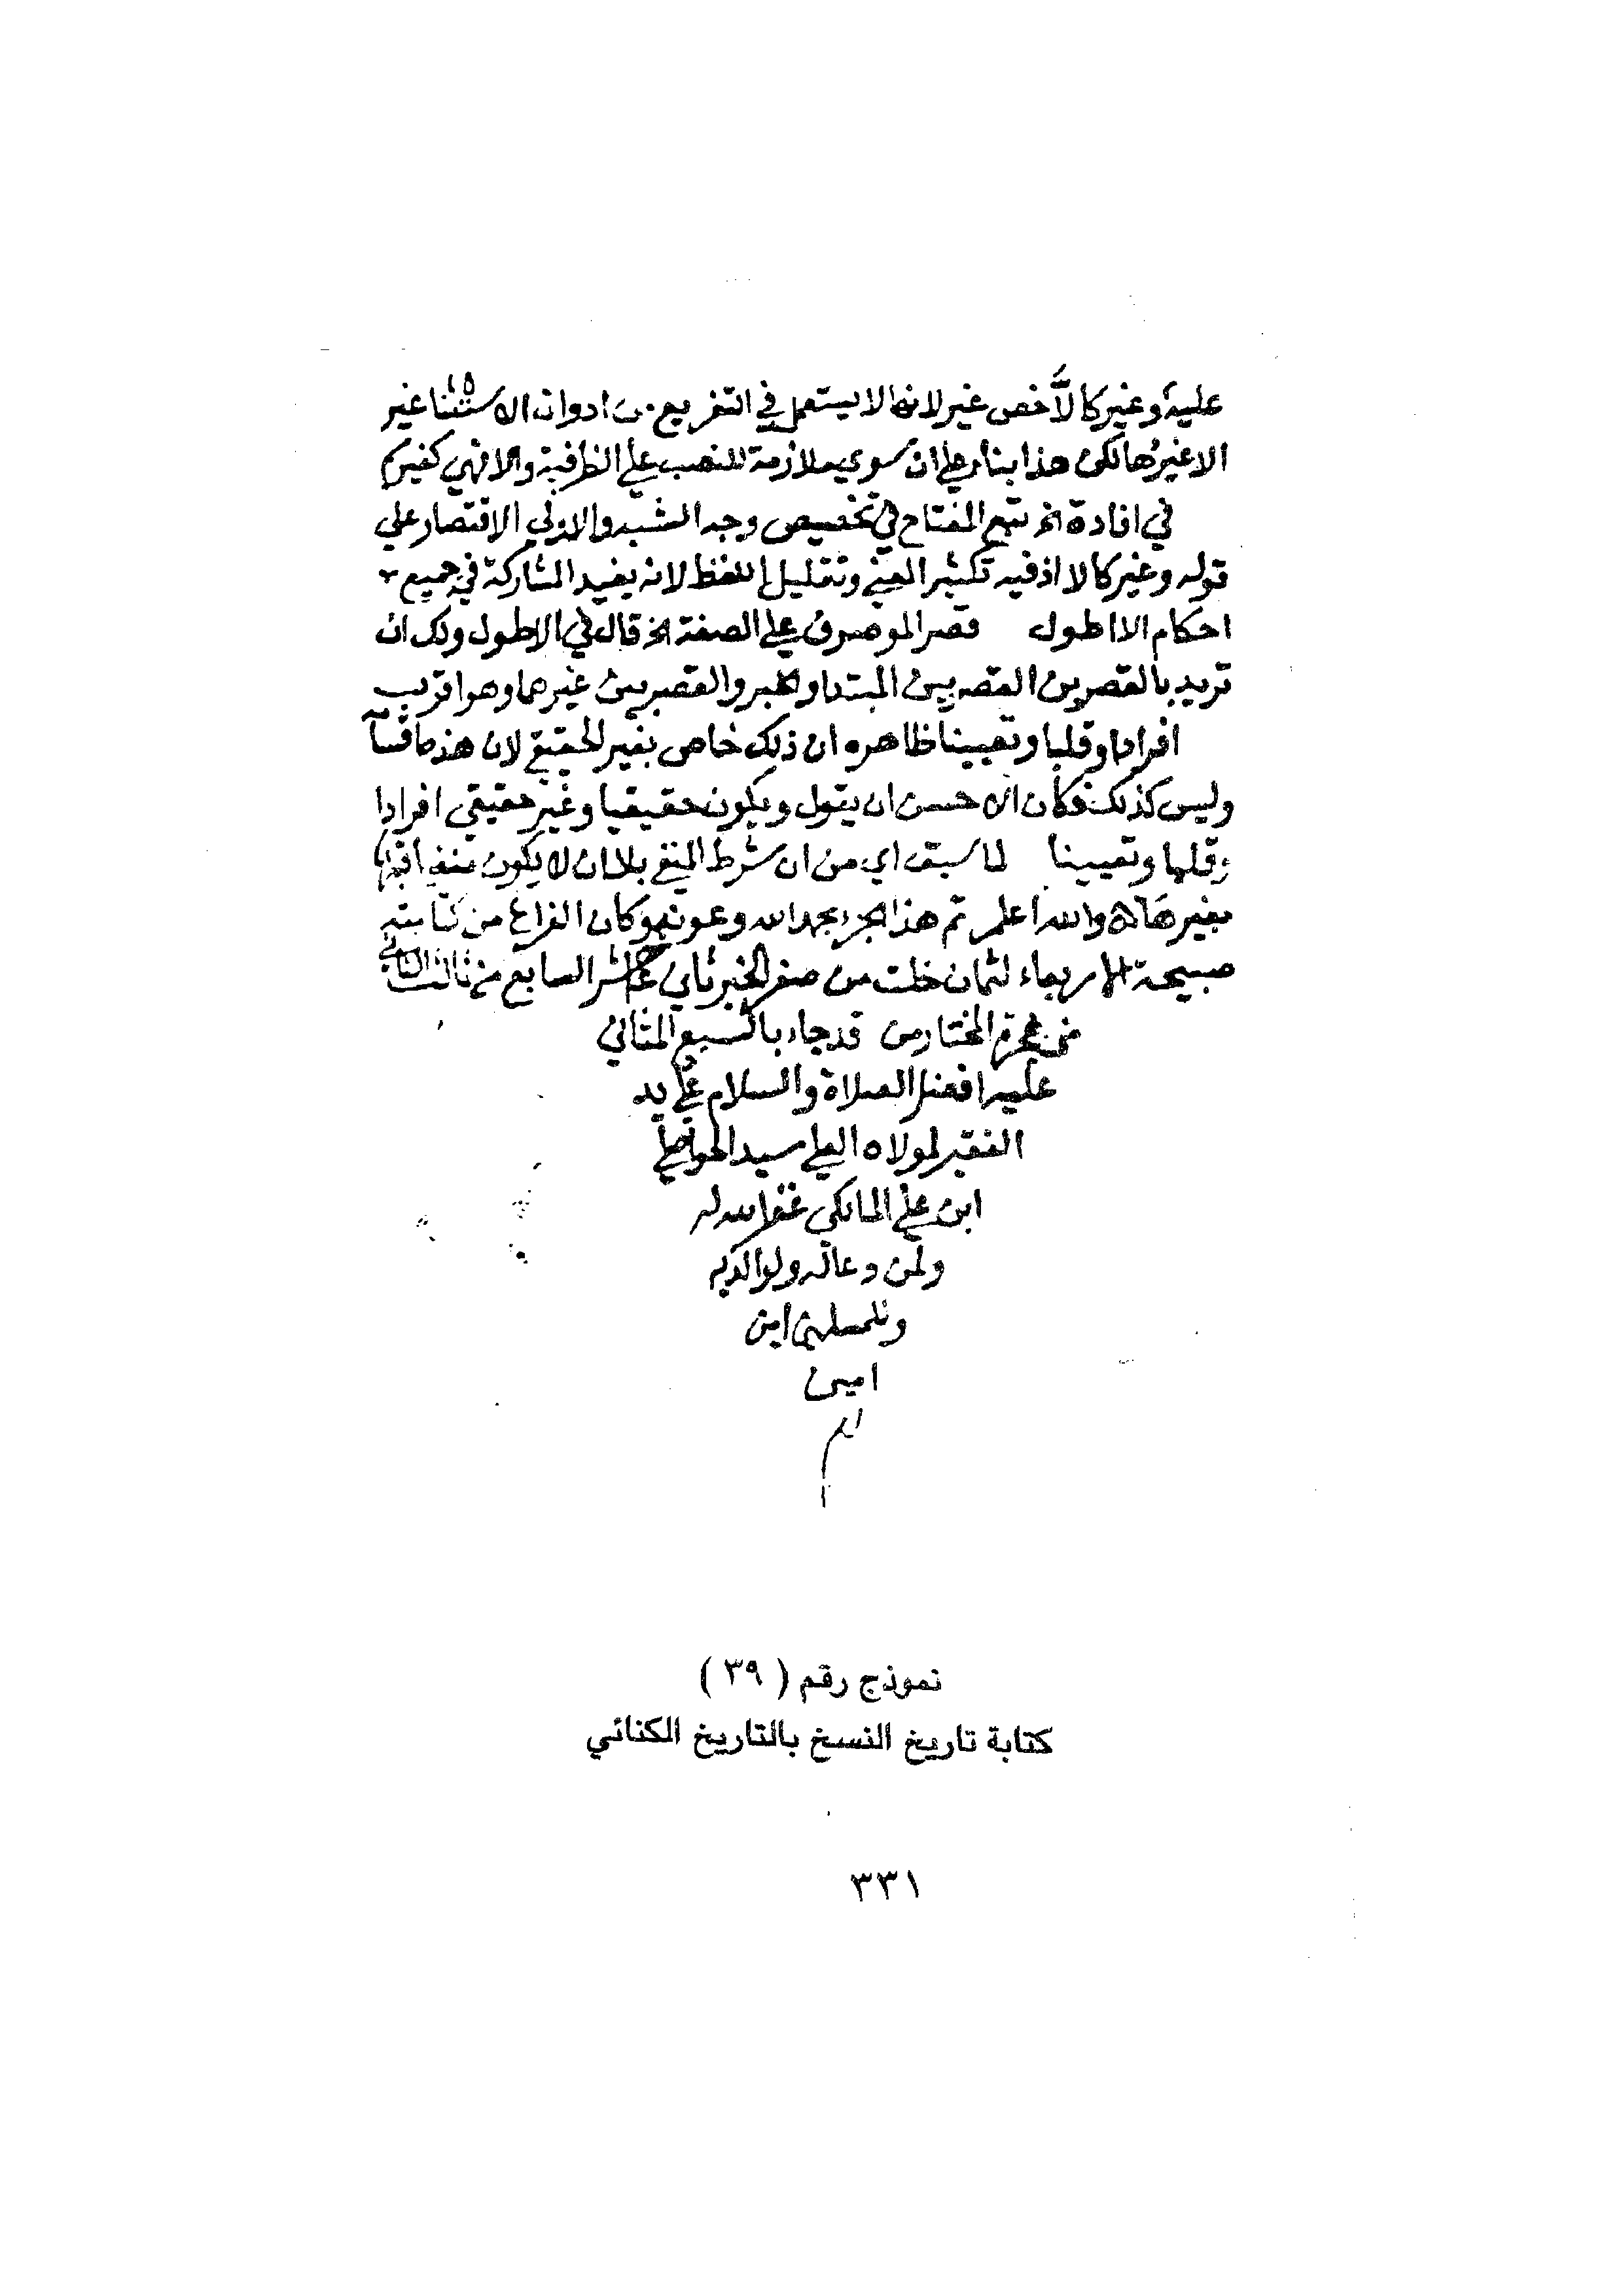 عليه وغير كالا خص غير لانها لا يستعمل في التفريع من ادوات الاستثنا غير
الا غيرها لكن هذا بناء على ان سوى ملازمة للنصب على الظرفية والا فهي كغير
في افادة الخ تتبع المفتاح في تخصيص وجه الشبه والاولي الاقتصار علي
قوله وغير كالا اذ فيه تكثير المعني وتقليل اللفظ لانه يفيد المشاركة في جميع
احكام الا اطول قصر الموصوف علي الصفة الخ قال في الاطول ولك ان
تريد بالقصرين القصر بين المبتدا والخبر والقصر بين غيرهما وهو اقرب
افرادا وقلبا وتعيينا ظاهره ان ذلك خاص بغير الحقيقي لان هذه اقسامه
وليس كذلك فكان الاحسن ان يقول ويكون حقيقيا وغير حقيقي افرادا
وقلبا وتعيينا لما سبق اي من ان شرط المنفي بلا ان لا يكون منفيا قبلها
بغيرها والله اعلم تم هذا الجزء بحمد الله وعونه وكان الفراغ من كتابته
صبيحة الاربعاء لثمان خلت من صفر الخير ثاني عاشر السابع من ثالث الثاني
من هجرة المختار من قد جاء بالسبع المثاني
عليه افضل الصلاة والسلام علي يد
الفقير لمولاه العلي سيد
ابن علي المالكي غفر الله له
ولمن دعا له ولوالديه
وللمسلمين امين
امين
نموذج رقم ( ٣٩ )
كتابة تاريخ النسخ بالتاريخ الكنائي
٣٣١